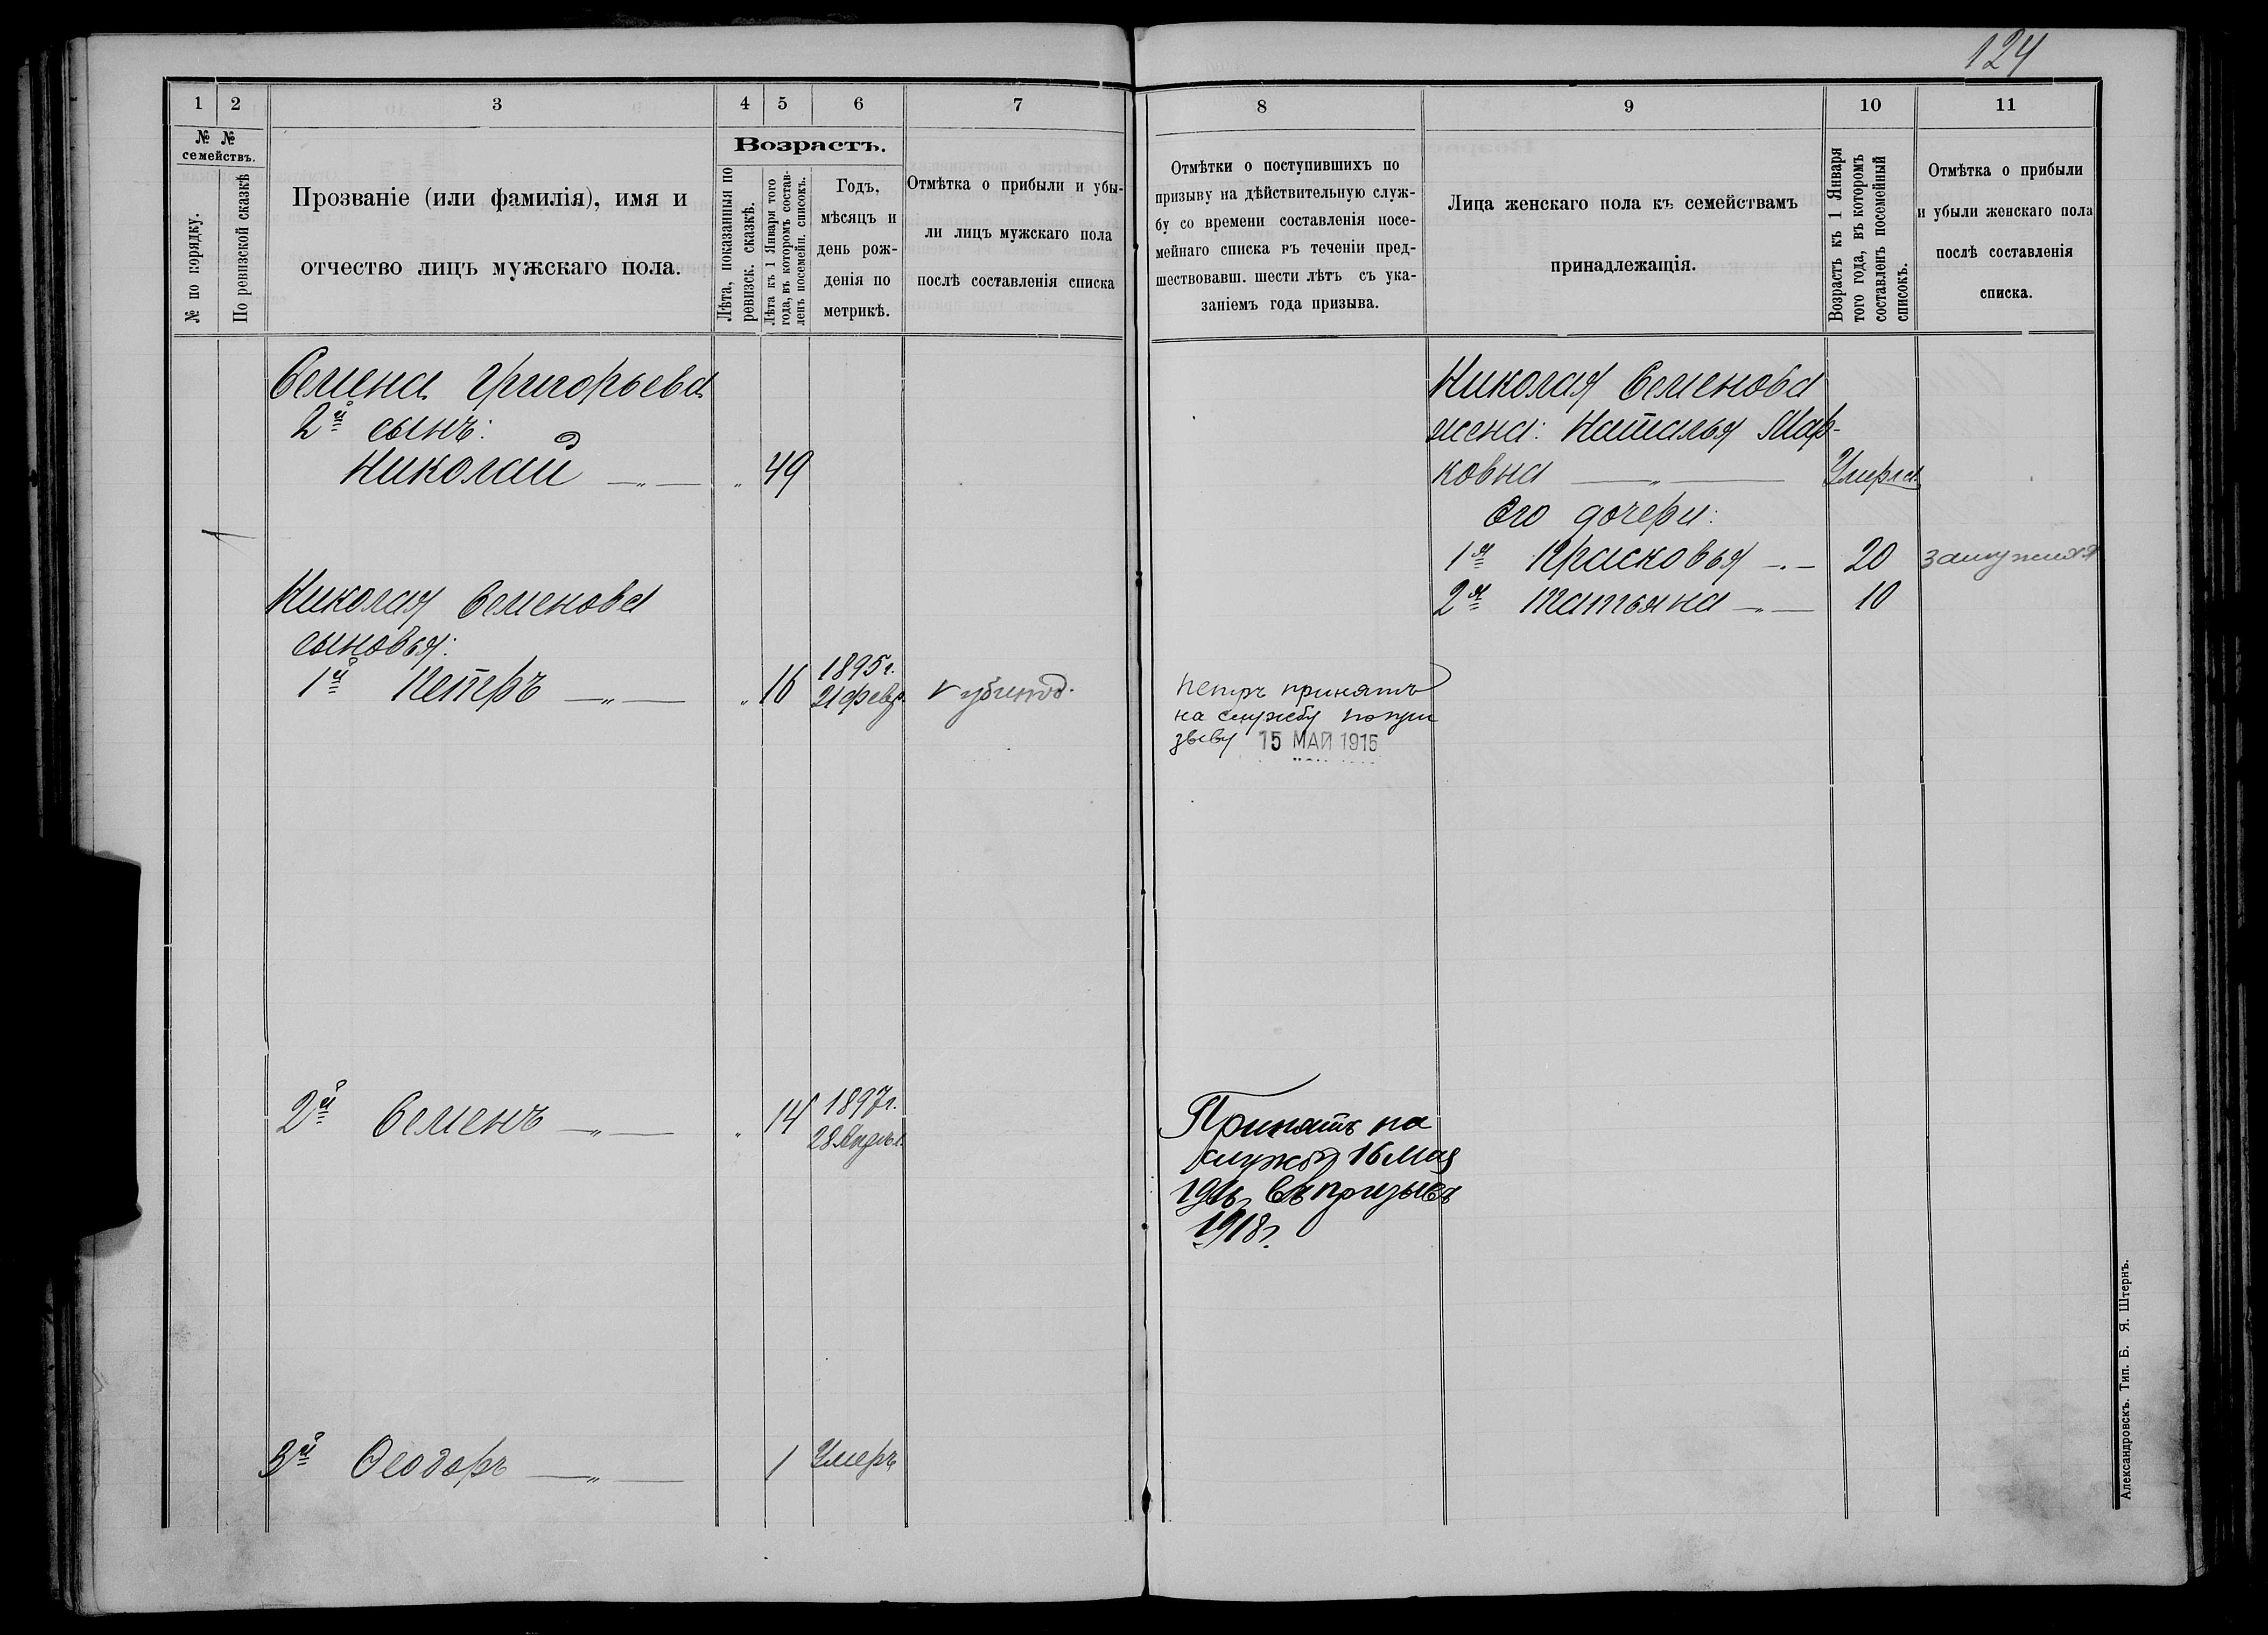 124
1 2 3 4 5 6 7
№ № семействъ.
№ по порядку.
По ревизской сказкѣ
Прозваніе (или фамилія), имя и
отчество лицъ мужскаго пола.
Возрастъ.
Лѣта, показанныя по
ревизск. сказкѣ.
Лѣта къ 1 Января того
года, въ которомъ состав-
ленъ посемейн. списокъ.
Годъ,
мѣсяцъ и
день рож-
денія по
метрикѣ.
Отмѣтка о прибыли и убы-
ли лицъ мужскаго пола
послѣ составленія списка
Семена Григорьева
2й сынъ:
Николай — „ — „ 49
Николая Семенова
сыновья:
1й Петръ — „ — „ 16 1895 г.
21 февр.
2й Семенъ — „ — „ 14 1897 г.
28 Апрѣл.
3й Ѳеодоръ — „ — 1 Умеръ
8 9 10 11
Отмѣтки о поступившихъ по
призыву на дѣйствительную служ-
бу со времени составленія посе-
мейнаго списка въ теченіи пред-
шествовавш. шести лѣтъ съ ука-
заніемъ года призыва.
Лица женскаго пола къ семействамъ
принадлежащія.
Возрастъ къ 1 Января
того года, въ которомъ
составленъ посемейный
списокъ.
Отмѣтка о прибыли
и убыли женскаго пола
послѣ составленія
списка.
Николая Семенова
жена: Наталья Мар-
ковна — „ — Умерла
Его дочери:
1я Прасковья — „ — 20 замужняя
2я Татьяна — „ — 10
Петръ принятъ
на службу по при
зыву 15 МАЙ 1915
Принятъ на
службу 16 Мая
1916 г. въ призывъ
1918 г.
Александровскъ. Тип. Б. Я. Штернъ.